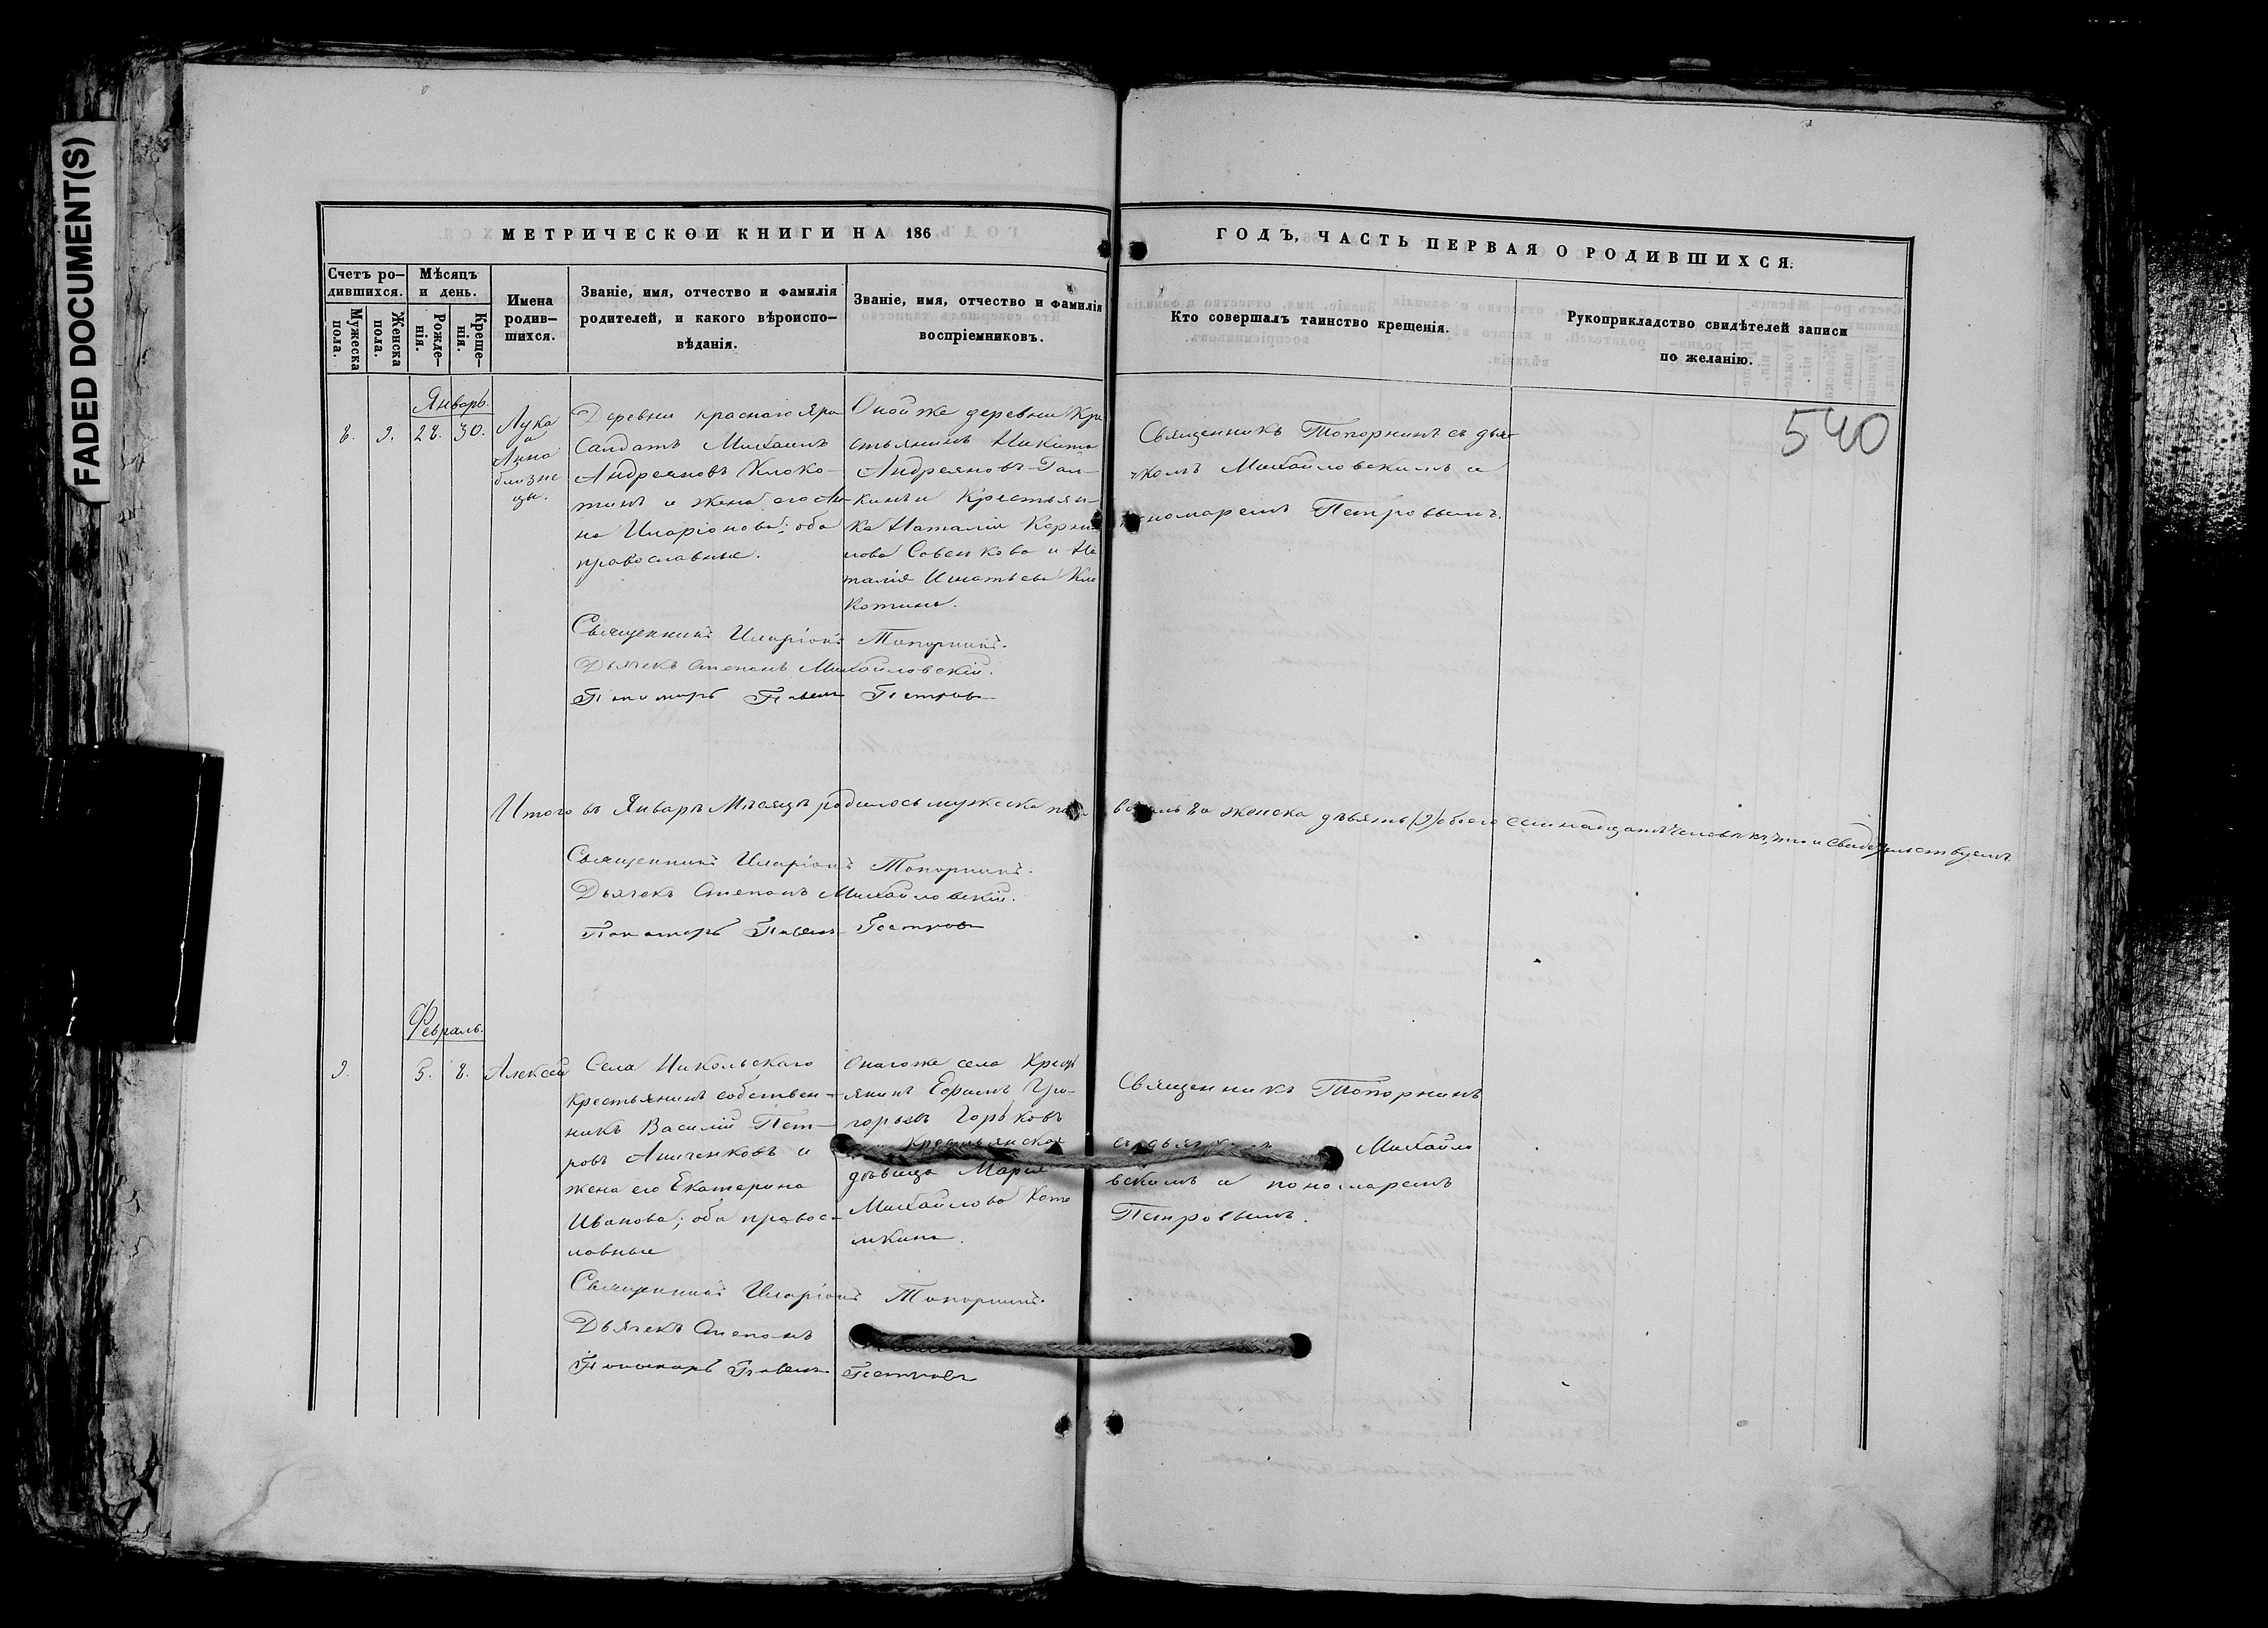 FADED DOCUMENT(S)
МЕТРИЧЕСКОЙ КНИГИ НА 186
ГОДЪ, ЧАСТЬ ПЕРВАЯ О РОДИВШИХСЯ.
Счетъ ро-
дившихся.
Мужеска
пола.
Женска
пола.
Мѣсяцъ
и день.
Рожде-
нія.
Креще-
нія.
Имена
родив-
шихся.
Званіе, имя, отчество и фамилія
родителей, и какого вѣроиспо-
вѣданія.
Званіе, имя, отчество и фамилія
воспріемниковъ.
Кто совершалъ таинство крещенія.
Рукоприкладство свидѣтелей записи
по желанію.
540
Январь.
8. 9. 28. 30.
Лука
и
Анна
близне
цы.
Деревни краснаго Яра
Салдатъ Михаилъ
Андреяновъ Клоко-
тинъ и жена его Ан-
на Иларіонова; оба
православные.
Оной же деревни Кре
стьянинъ Никита
Андреяновъ Гал-
кинъ и Крестьян-
ка Наталія Корни
лова Савенкова и На
талія Игнатьева Кло
котина.
Священникъ Топорнинъ съ дья-
чкомъ Михайловскимъ и
пономаремъ Петровымъ.
Священникъ Иларіонъ Топорнинъ.
Дьячекъ Степанъ Михайловскій.
Пономарь Павелъ Петровъ
Итого въ Январѣ Мѣсяцѣ родилось мужеска пола женска девять (9) обоего семнадцать человѣкъ, что и свидѣтельствуемъ.
Священникъ Иларіонъ Топорнинъ.
Дьячекъ Степанъ Михайловскій.
Пономарь Павелъ Петровъ
Февраль.
9. 5. 8. Алексѣй
Села Никольскаго
крестьянинъ собствен-
никъ Василій Пет-
ровъ Аниченковъ и
жена его Екатерина
Иванова; оба правос-
лавные
Онаго же села Крест
янинъ Ефимъ Гри-
горьевъ Горьковъ
крестьянская
дѣвица Марія
Михайлова Кото
мкина.
Священникъ Топорнинъ
съ Михайло
вскимъ и пономаремъ
Петровымъ.
Священникъ Иларіонъ Топорнинъ.
Дьячекъ Степанъ
Пономарь Павелъ Петровъ